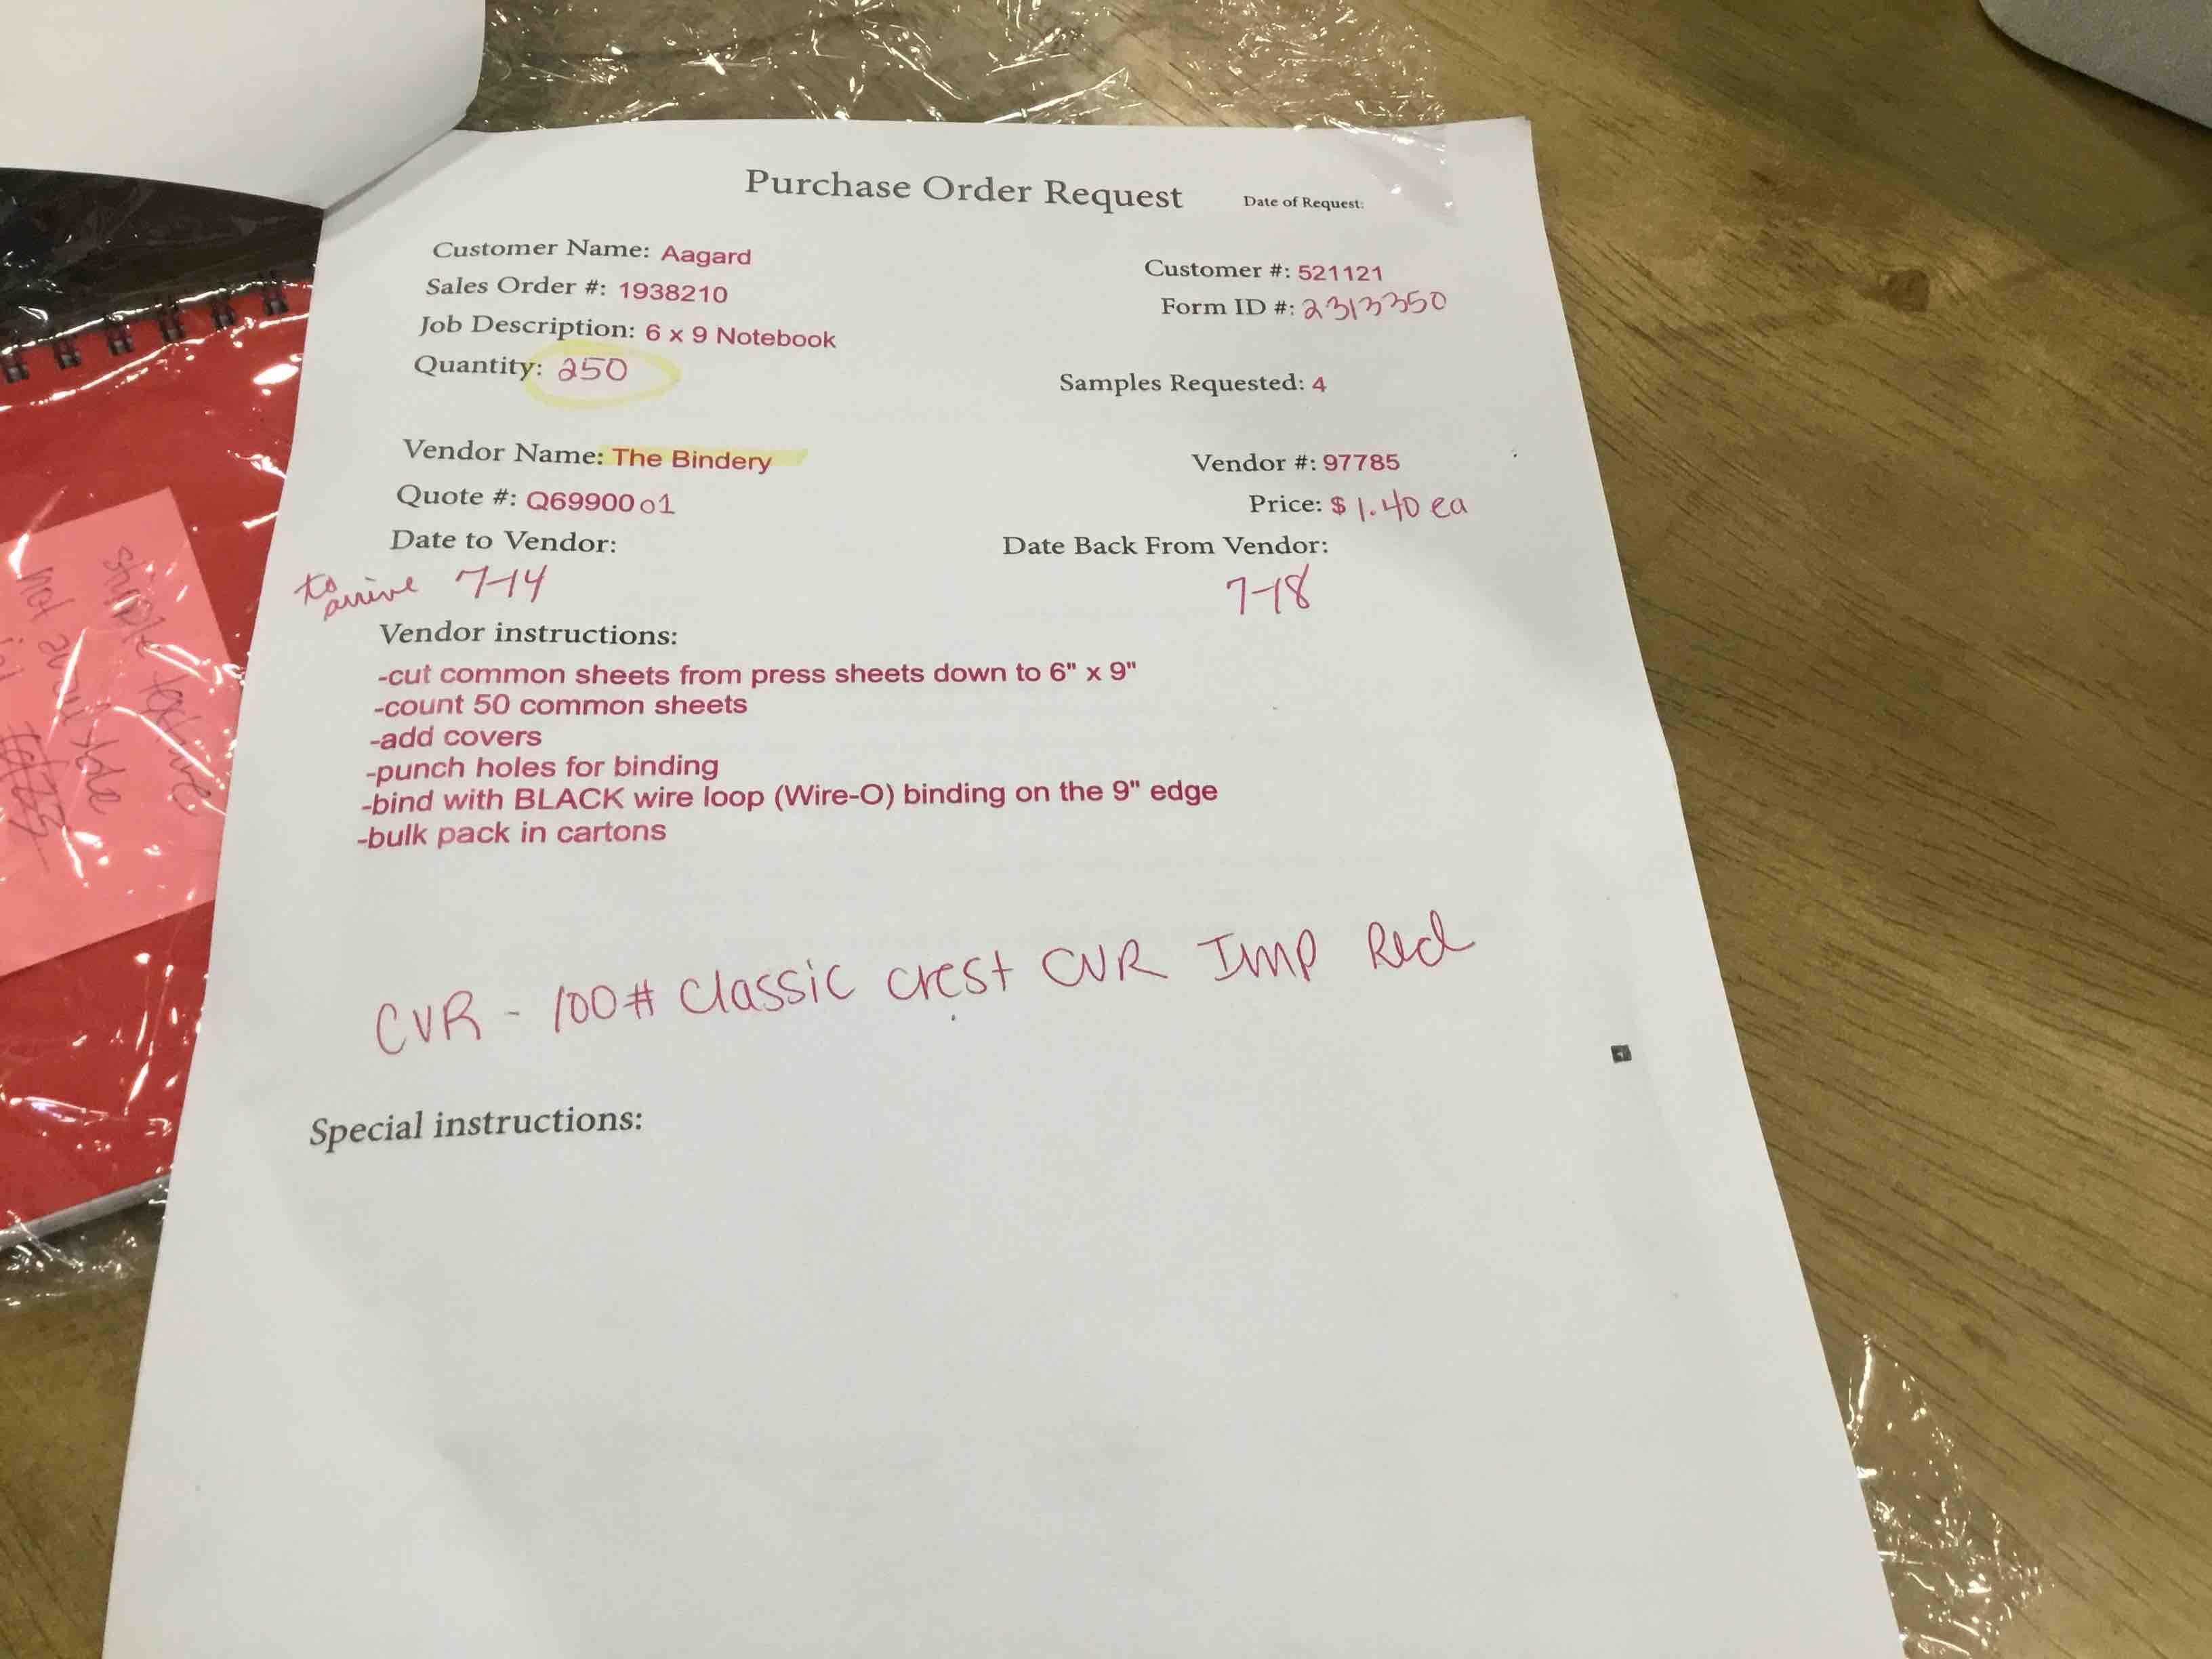 Purchase Order Request
Date of Request:
Customer Name: Aagard
Customer #: 521121
Sales Order #: 1938210
Form ID #: 2313350
Job Description: 6 x 9 Notebook
Quantity: 250
Samples Requested: 4
Vendor Name: The Bindery
Vendor #: 97785
Quote #: Q6990001
Price: $ 1.40 ea
Date to Vendor:
Date Back From Vendor:
to arrive 7-14
7-18
Vendor instructions:
-cut common sheets from press sheets down to 6" x 9"
-count 50 common sheets
-add covers
-punch holes for binding
-bind with BLACK wire loop (Wire-O) binding on the 9" edge
-bulk pack in cartons
CVR - 100# Classic Crest CVR Imp Red
Special instructions:
not